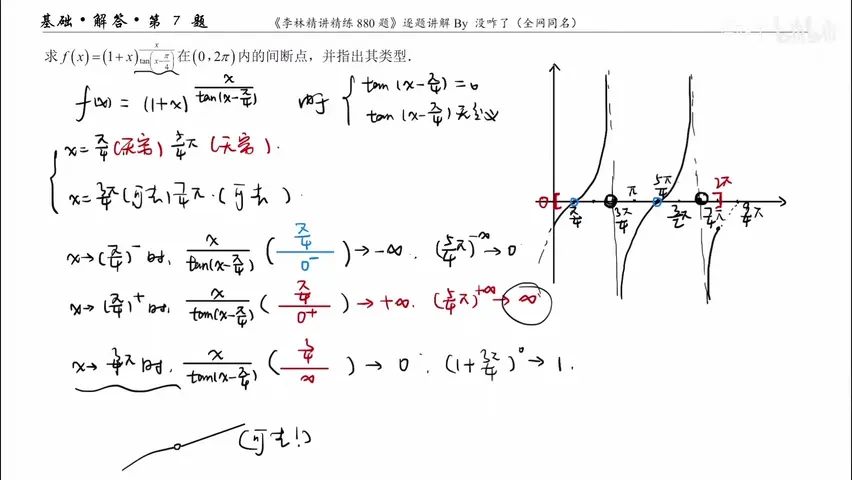 基础·解答·第 7 题
《李林精讲精练 880 题》逐题讲解 By 没咋了（全网同名）
bilibili
求 f(x)=(1+x)^{x/tan(x-π/4)} 在(0,2π)内的间断点，并指出其类型.
f(x) = (1+x)^{x/tan(x-π/4)} 由于 { tan(x-π/4)=0
tan(x-π/4)无意义
{ x=π/4(无穷) 5/4π (无穷).
x=3/4π(可去) 7/4π.(可去).
x→(π/4)⁻时, x/tan(x-π/4) (π/4 / 0⁻) → -∞. (5/4π)^{-∞} → 0
x→(π/4)⁺时, x/tan(x-π/4) (π/4 / 0⁺) → +∞. (5/4π)^{+∞} → ∞
x→3/4π时, x/tan(x-π/4) (3/4 / ∞) → 0. (1+3π/4)^0 → 1.
(可去!)
0 π/4 3π/4 π 5π/4 3/2π 7/4π 2π 9/4π